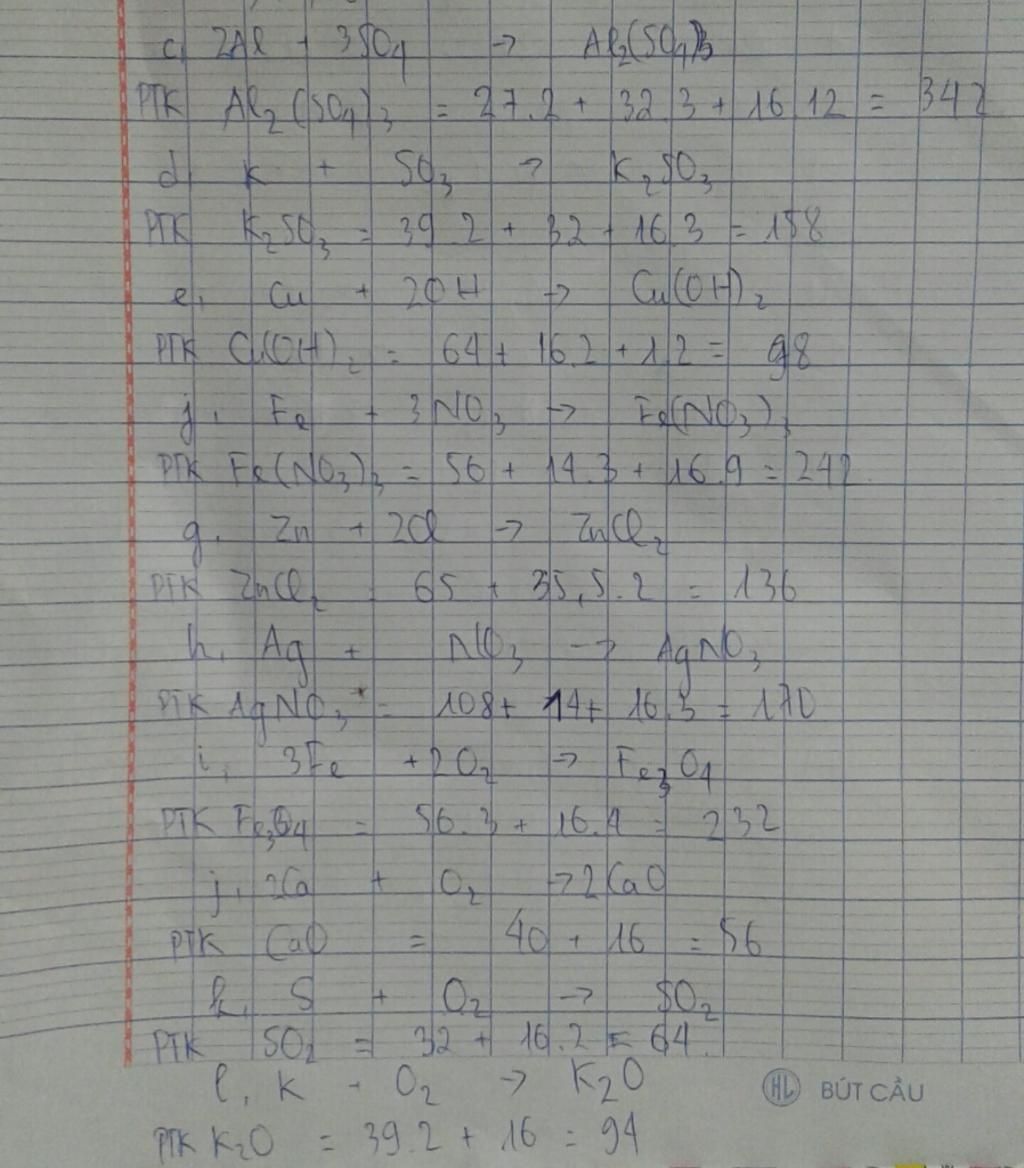 c, 2Al + 3SO4 → Al2(SO4)3
PTK Al2(SO4)3 = 27.2 + 32.3 + 16.12 = 342
d, K + SO3 → K2SO3
PTK K2SO3 = 39.2 + 32 + 16.3 = 158
e, Cu + 2OH → Cu(OH)2
PTK Cu(OH)2 = 64 + 16.2 + 1.2 = 98
f, Fe + 3NO3 → Fe(NO3)3
PTK Fe(NO3)3 = 56 + 14.3 + 16.9 = 242
g, Zn + 2Cl → ZnCl2
PTK ZnCl2 = 65 + 35,5.2 = 136
h, Ag + NO3 → AgNO3
PTK AgNO3 = 108 + 14 + 16.3 = 170
i, 3Fe + 2O2 → Fe3O4
PTK Fe3O4 = 56.3 + 16.4 = 232
j, 2Ca + O2 → 2CaO
PTK CaO = 40 + 16 = 56
k, S + O2 → SO2
PTK SO2 = 32 + 16.2 = 64
l, K + O2 → K2O
HL BÚT CẦU
PTK K2O = 39.2 + 16 = 94